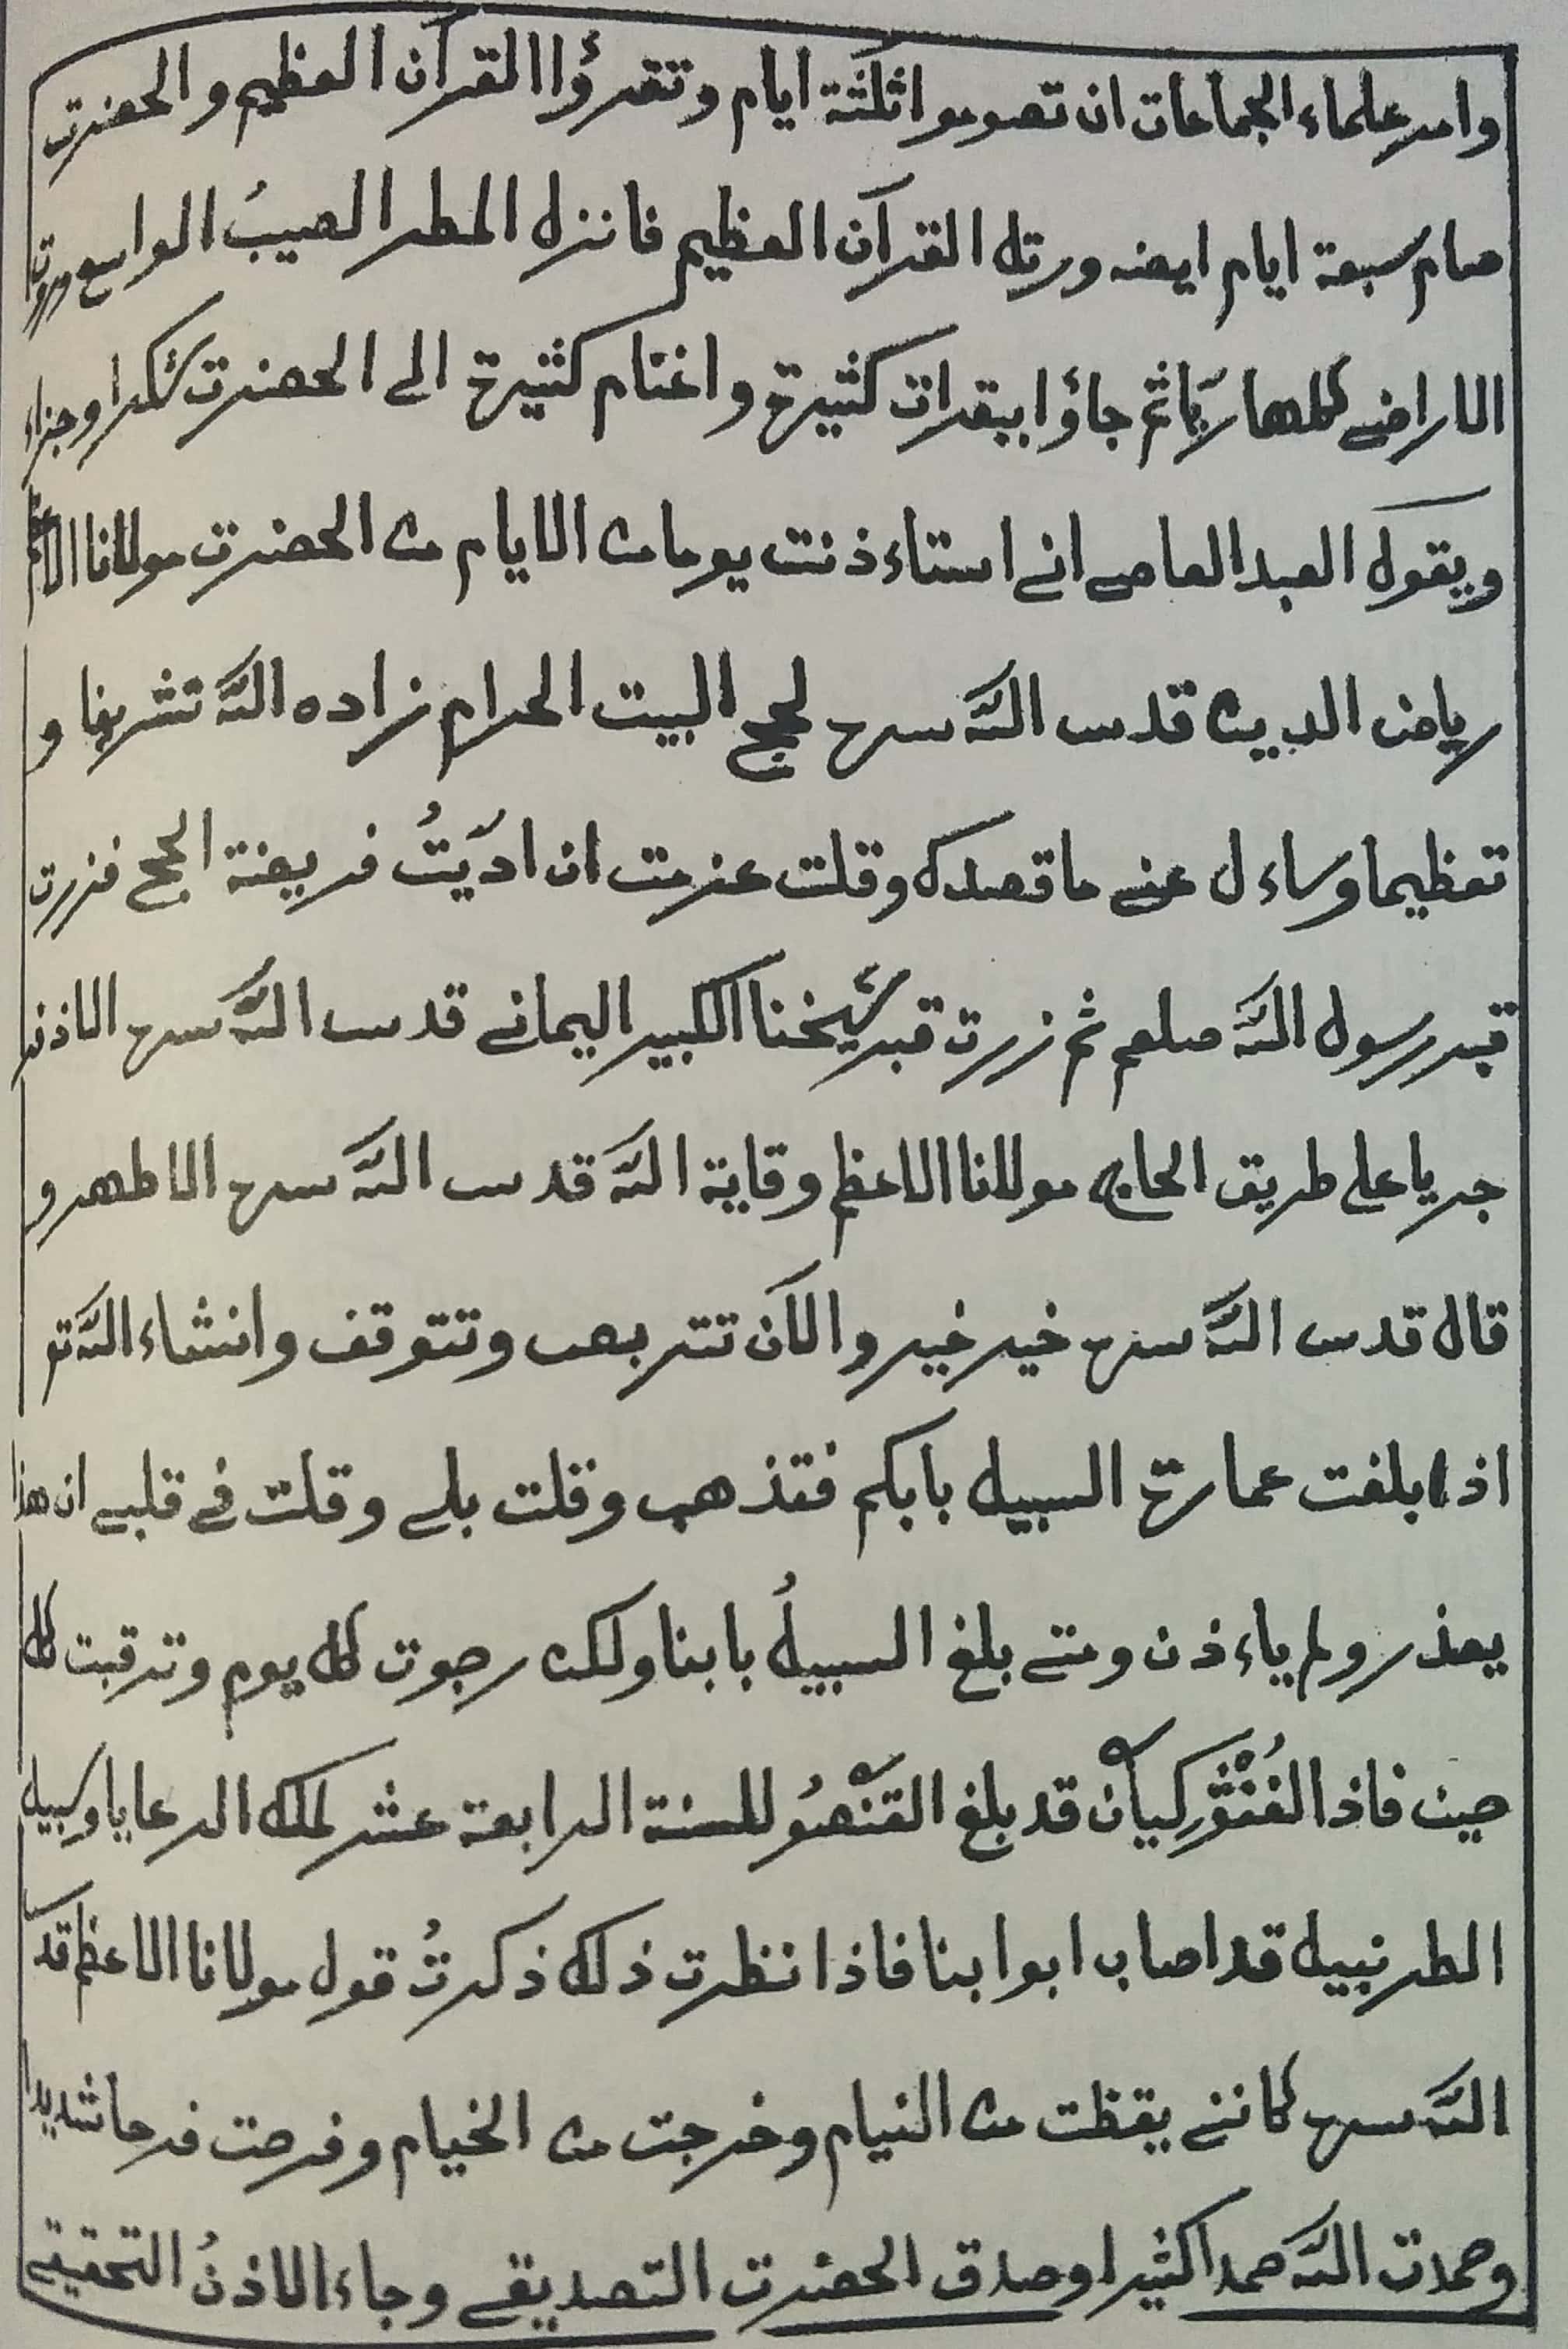 وامر علماء الجماعات ان تصوموا ثلثة ايام وتقرؤا القرآن العظيم والحضرت
صام سبعة ايام ايضه ورتل القرآن العظيم فانزل المطر الصيبُ الواسع وروت
الاراضي كلها ريّا ثم جاؤا ببقرات كثيرة واغنام كثيرة الى الحضرت شكرا وجزاء
ويقول العبد العاصي اني استاءذنت يوما من الايام من الحضرت مولانا الاعظم
رياض الدين قدس اللّه سره لحج البيت الحرام زاده اللّه تشريفا و
تعظيما وساءل عني ما قصدك وقلت عزمت ان ادّيتُ فريضة الحج فزرت
قبر رسول اللّه صلعم ثم زرت قبر شيخنا الكبير اليماني قدس اللّه سره الاذنه
جريا على طريق الحاج مولانا الاعظم وقاية اللّه قدس اللّه سره الاطهر و
قال قدس اللّه سره خير خير والآن تتربص وتتوقف وانشاء اللّه تو
اذا بلغت عمارة السبيل بابكم فتذهب وقلت بلى وقلت في قلبي ان هذا
يعذر ولم ياءذن ومتى بلغ السبيلُ بابنا ولكن رجوت كل يوم وترقبت كل
حين فاذا قد بلغ للسنة الرابعة عشر لملك الرعايا وسبيل
الطرنبيل قد اصاب ابوابنا فاذا نظرت ذلك ذكرتُ قول مولانا الاعظم قدس
اللّه سره كانني يقظت من النيام وخرجت من الخيام وفرحت فرحا شديدا
وحمدت اللّه حمدا كثيرا وصدق الحضرت التصديقي وجاء الاذنُ التحقيقي